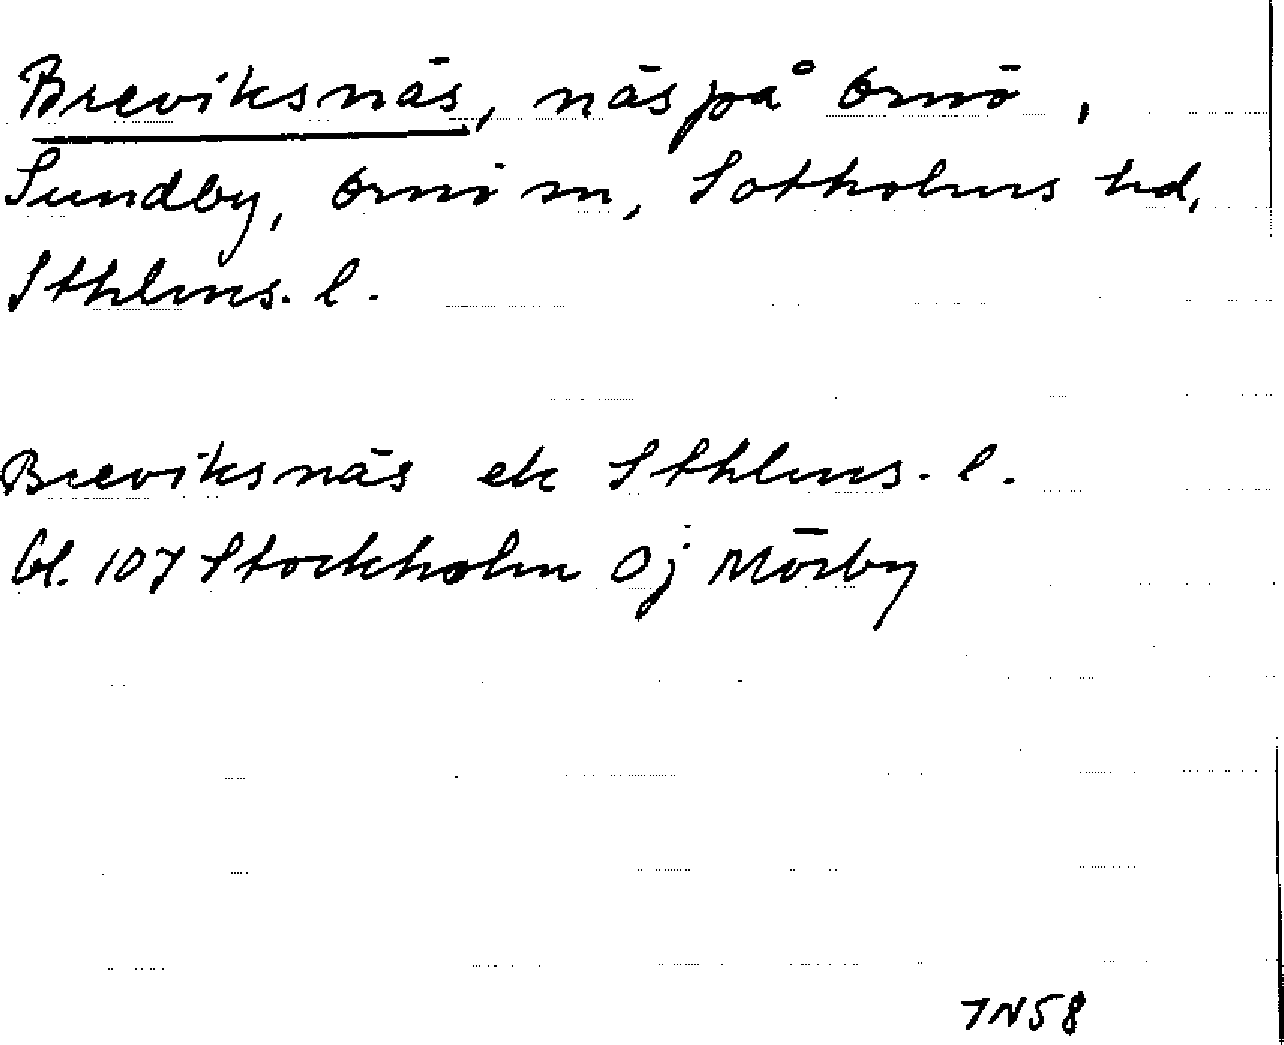 Breviksnäs, näs på Ornö,
Sundby, Ornö sn, Sotholms hd,
Sthlms. l.
Breviksnäs ek Sthlms. l.
bl. 107 Stockholm Oj Mörby
7N58